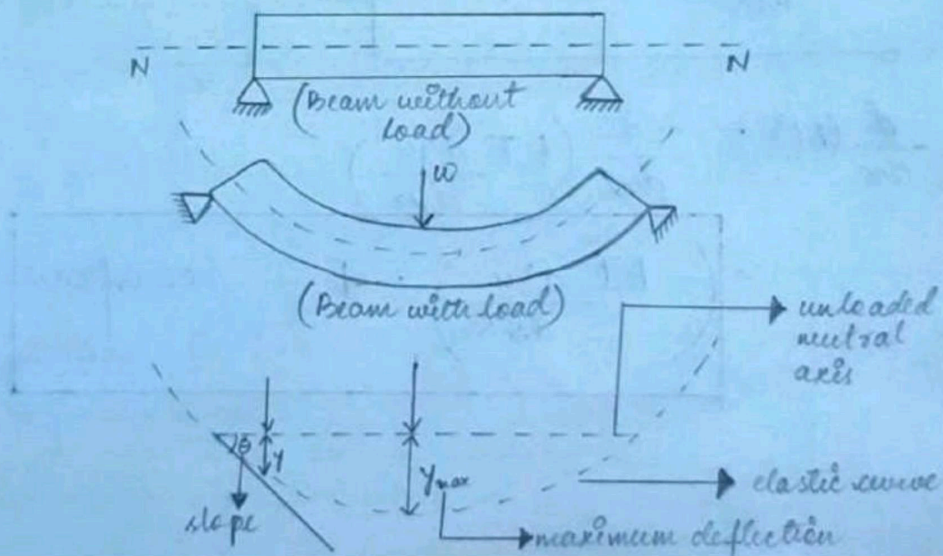 N N
(Beam without
load)
w
(Beam with load)
unloaded
neutral
axis
θ y
ymax
elastic curve
slope
maximum deflection